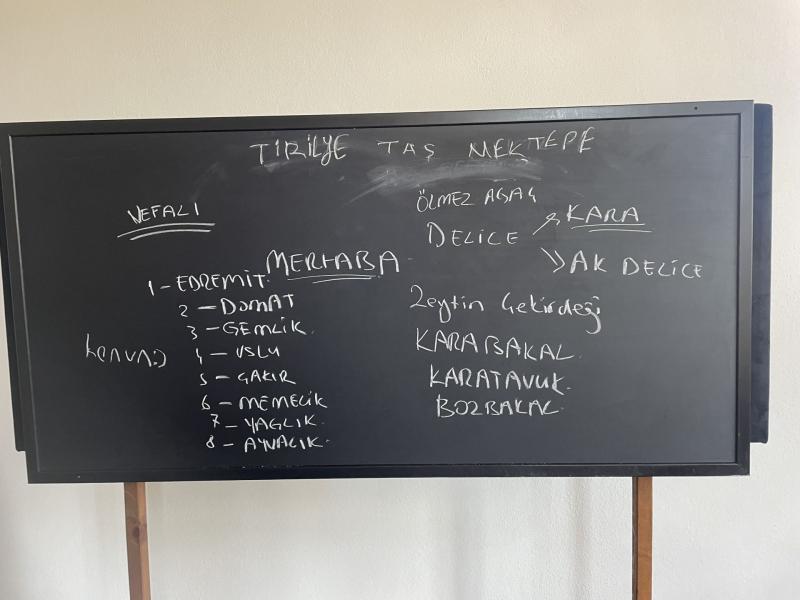 TIRILYE TAŞ MEKTEPE
VEFALI
MERHABA
1 - EDREMİT.
2 - DOMAT
3 - GEMLİK.
4 - USLU
5 - ÇAKIR
6 - MEMELİK
7 - YAĞLIK.
8 - AYNALIK.
ÖLMEZ AĞAÇ
DELİCE KARA
AK DELİCE
Zeytin Çekirdeği
KARABAKAL.
KARATAVUK.
BOZBAKAL.